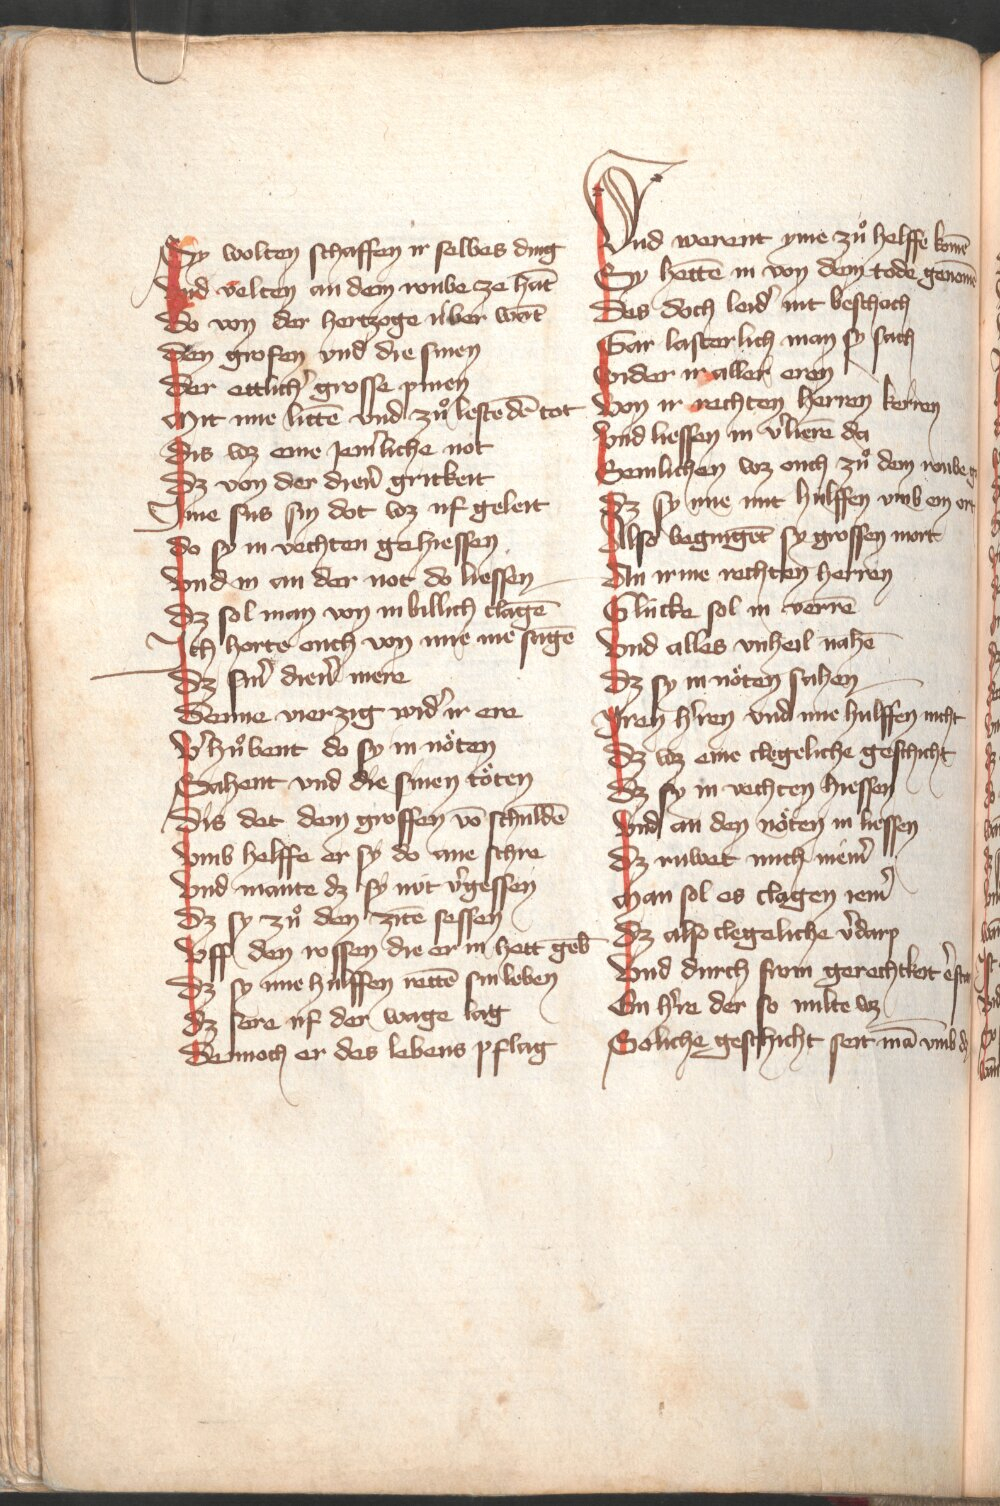 Sy wolten schaffen ir selbes ding
Vnd velten an dem roube ze hāt
Do von der hertzoge über wāt
Den grofen vnd die sinen
Der ettlich' grosse pinen
Mit ime littē vnd zů lestē dē tot
Dis wz eine jem'liche not
Dz von der dien' gritkeit
Ime sus sin dot wz uf geleit
Do sy in vechten gehiessen
Vnd in an der not do liessen
Dz sol man von in billich clagē
Ich horte ouch von ime me sagē
Dz sin' dien' mere
Denne vierzig wid' ir ere
V'hůbent do sy in nöten
Sahent vnd die sinen töten
Dis det dem groffen vō schuldē
Vmb helffe er sy do ane schre
Vnd mante dz sy nüt v'gessen
Dz sy zů den zitē sessen
Vff den rossen die er in hett gebē
Dz sy ime hulffen rettē sin leben
Dz sere uf der wage lag
Dennoch er des lebens pflag
Vnd werent yme zů helffe komē
Sy hettē in von dem tode genomē
Des doch leid' nit beschach
Gar lasterlich man sy sach
Wider ir aller eren
Von ir rechten herren kerren
Vnd liessen in v'lierē da
Semlichen wz ouch zů dem roube
Dz sy ime nut hulffen vmb ein ort
Also begingēt sy grossen mort
An irme rechten herren
Glücke sol in verrē
Vnd alles vnheil nahē
Dz sy in nöten sahen
Iren h'ren vnd ime hulffen nicht
Dz wz eine clegeliche geschicht
Dz sy in vechten hiessen
Vnd an den nöten in liessen
Dz ruwet mich niem'
Man sol es clagen iem'
Dz also clegeliche v'darp
Vnd durch sin gerechtkeit
Ein h're der so milte wz
Soliche geschicht seit mā vmb